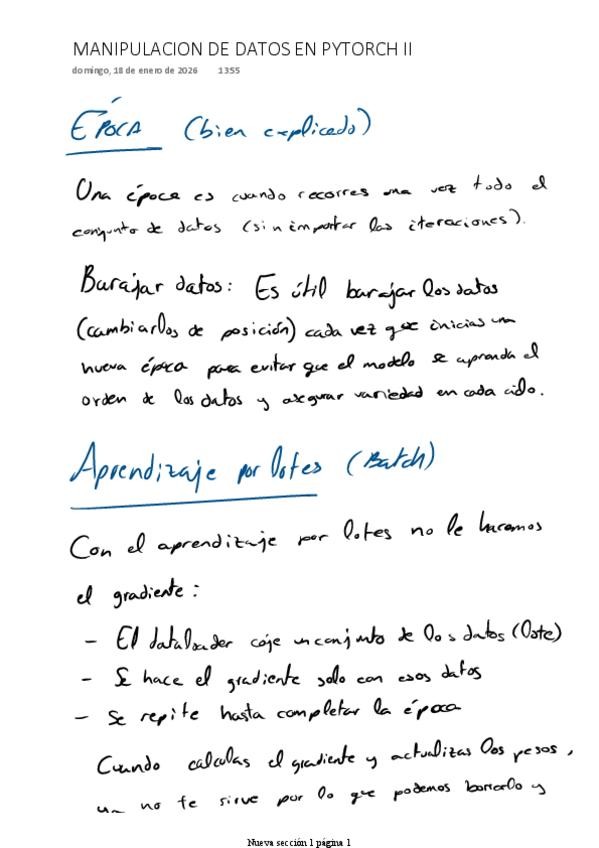 MANIPULACION DE DATOS EN PYTORCH II
domingo, 18 de enero de 2026 13:55
ÉPOCA (bien explicado)
Una época es cuando recorres una vez todo el
conjunto de datos (sin importar las iteraciones).
Barajar datos: Es útil barajar los datos
(cambiarlos de posición) cada vez que inicias una
nueva época para evitar que el modelo se aprenda el
orden de los datos y asegurar variedad en cada ciclo.
Aprendizaje por lotes (Batch)
Con el aprendizaje por lotes no le hacemos
el gradiente:
- El dataloader coje un conjunto de los datos (lote)
- Se hace el gradiente solo con esos datos
- Se repite hasta completar la época
Cuando calculas el gradiente y actualizas los pesos,
no te sirve por lo que podemos borrarlo y
Nueva sección 1 página 1